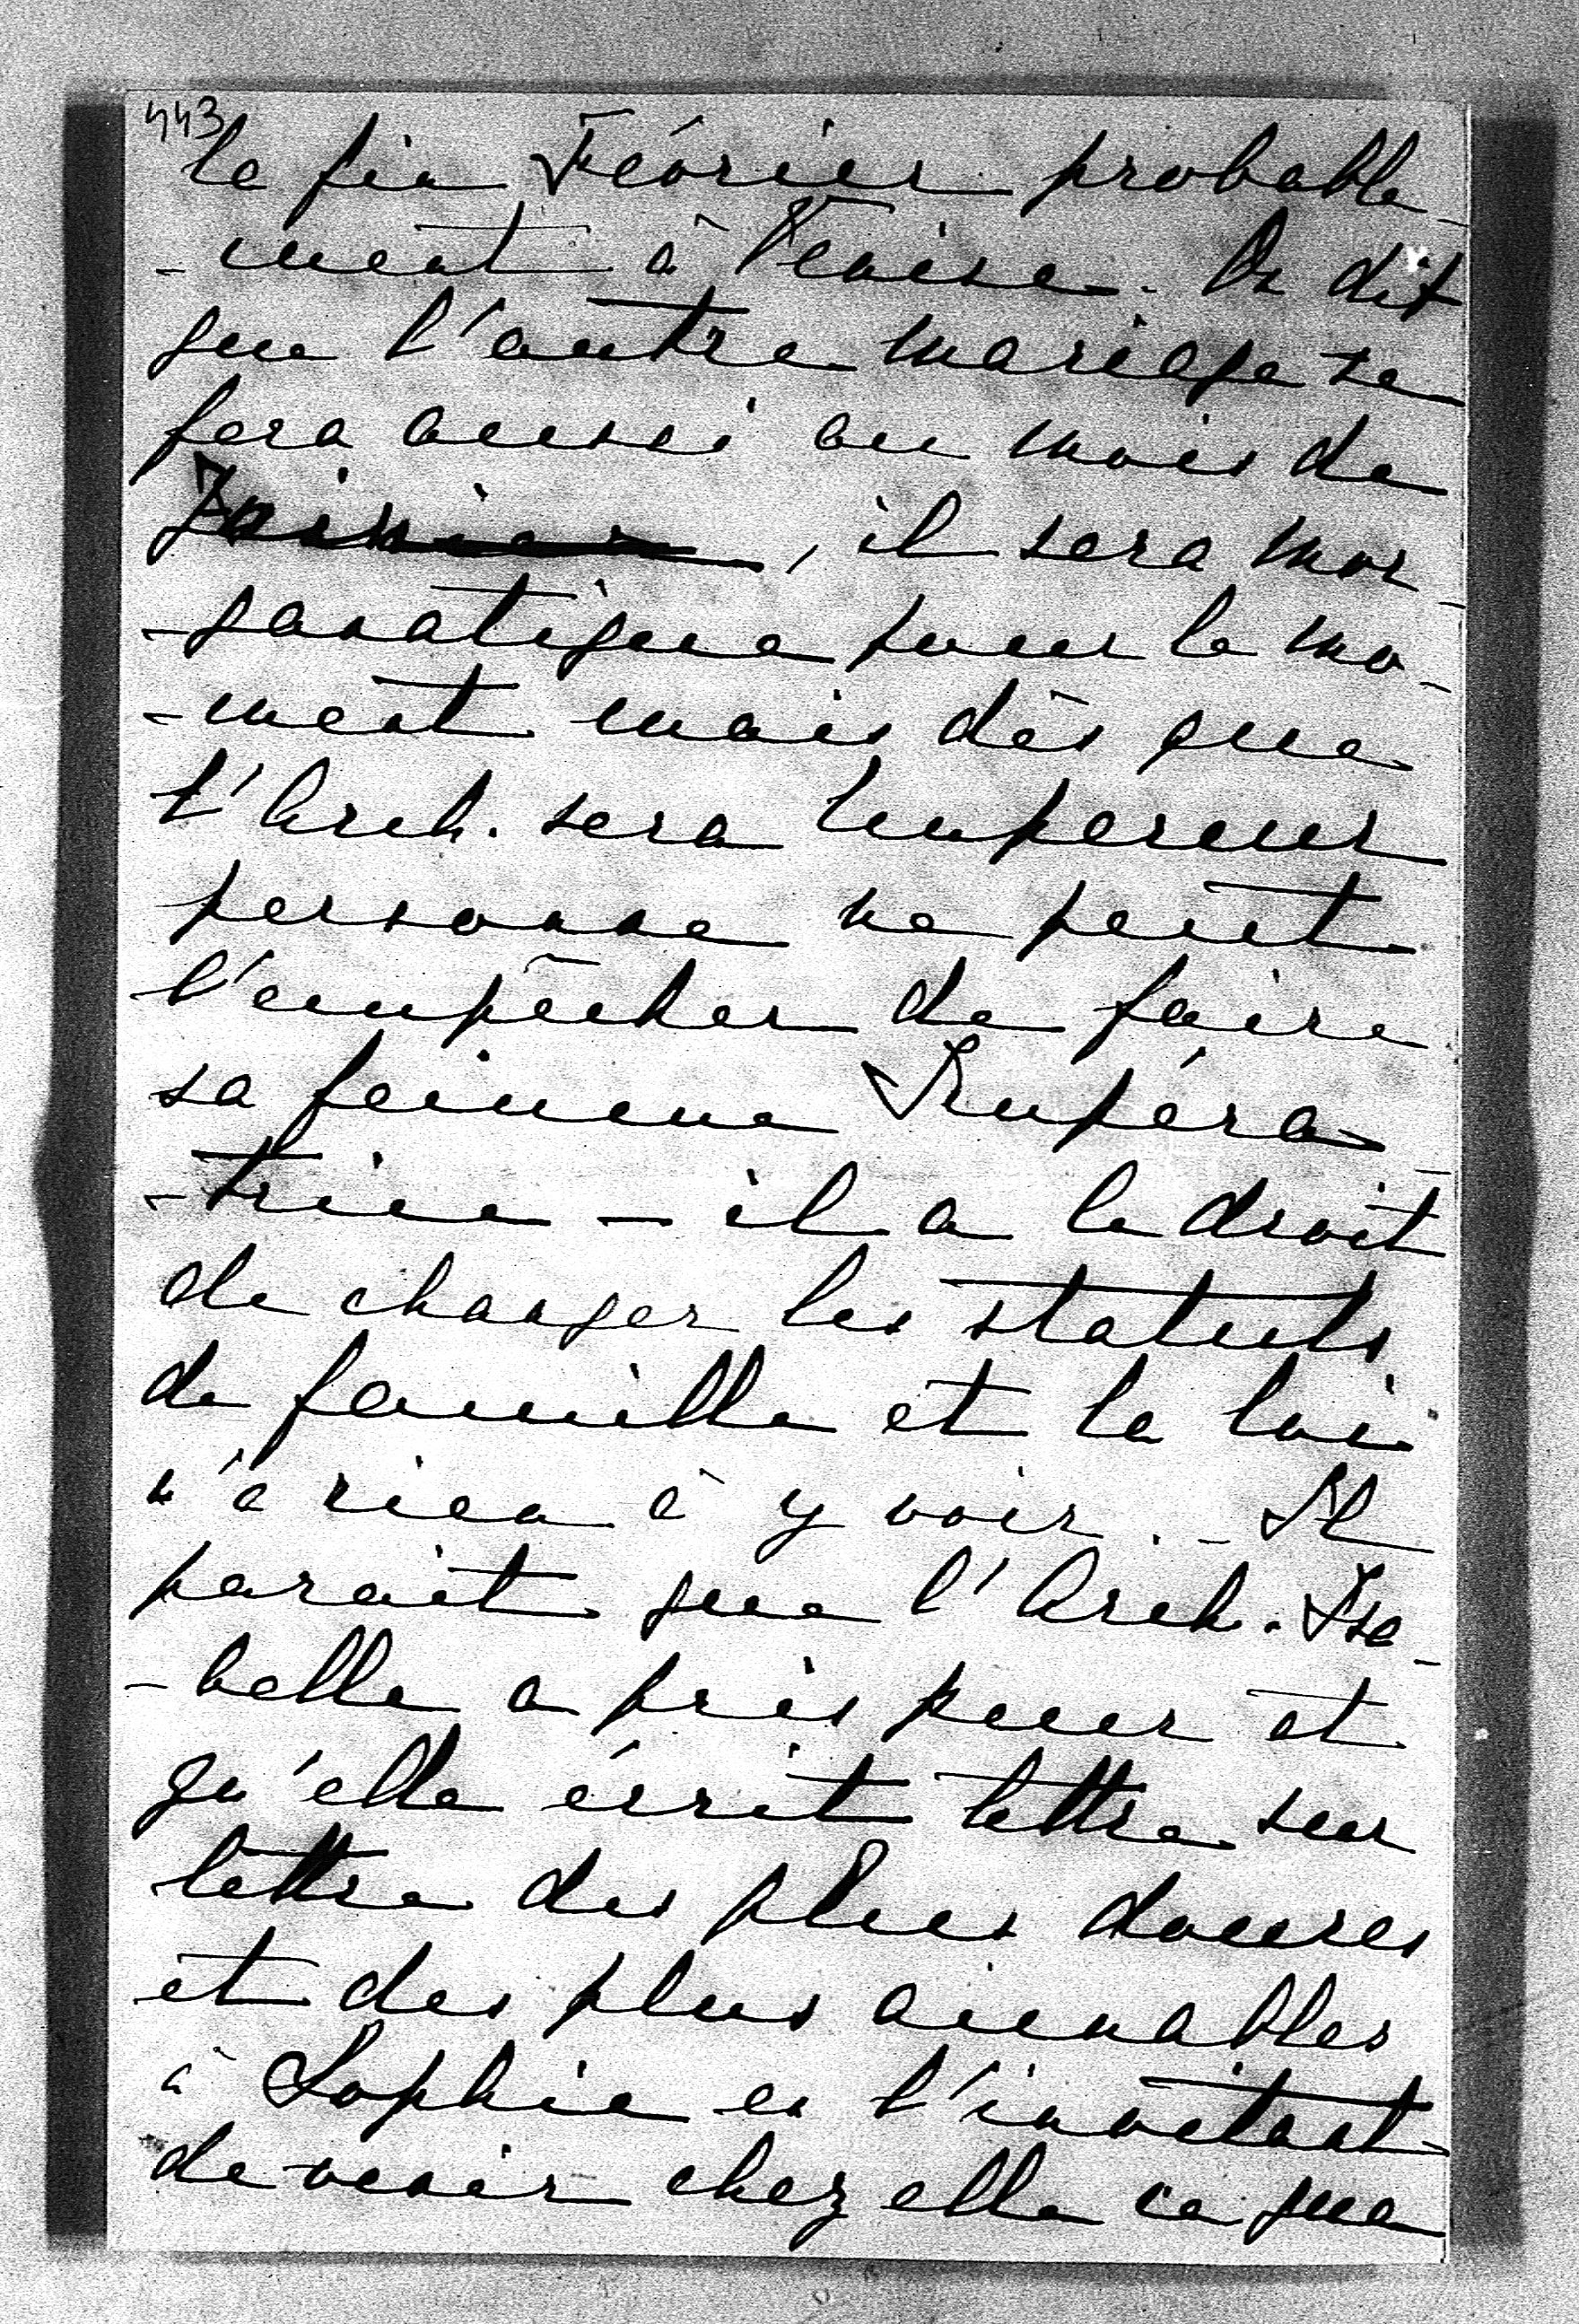 443
la fin Février probable-
-ment à Venise. On dit
que l'autre mariage se
fera aussi au mois de
Janvier, il sera mor-
-ganatique pour le mo-
-ment mais dès que
l'Arch. sera Empereur
personne ne peut
l'empêcher de faire
sa femme Impéra-
-trice – il a le droit
de changer les statuts
de famille et la loi
n'a rien à y voir. – Il
parait que l'Arch. Isa-
-belle a pris peur et
qu'elle écrit lettre sur
lettre des plus douces
et des plus aimables
à Sophie en l'invitant
de venir chez elle ce que